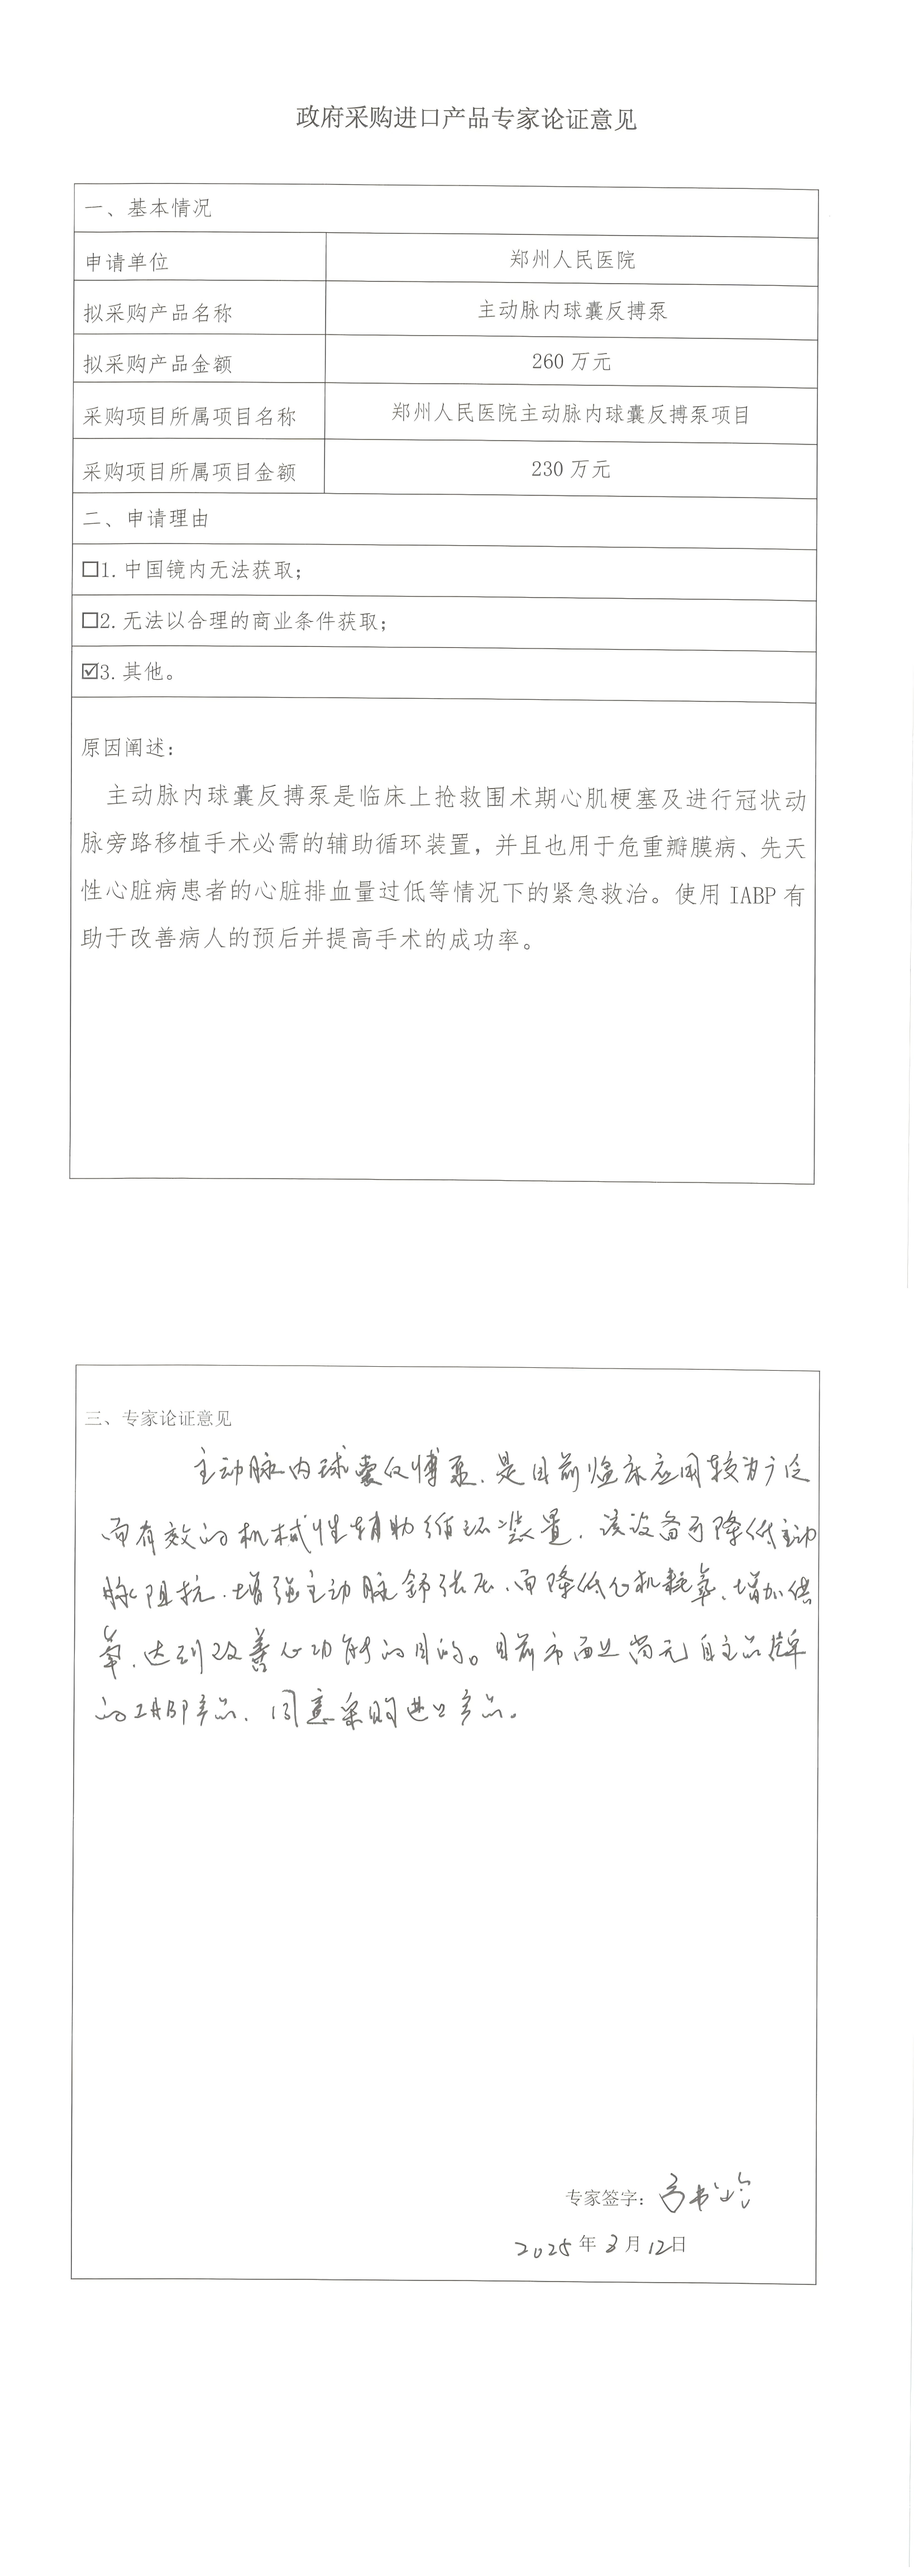 政府采购进口产品专家论证意见
一、基本情况
申请单位 郑州人民医院
拟采购产品名称 主动脉内球囊反搏泵
拟采购产品金额 260 万元
采购项目所属项目名称 郑州人民医院主动脉内球囊反搏泵项目
采购项目所属项目金额 230 万元
二、申请理由
☐1. 中国镜内无法获取；
☐2. 无法以合理的商业条件获取；
☑3. 其他。
原因阐述：
主动脉内球囊反搏泵是临床上抢救围术期心肌梗塞及进行冠状动
脉旁路移植手术必需的辅助循环装置，并且也用于危重瓣膜病、先天
性心脏病患者的心脏排血量过低等情况下的紧急救治。使用 IABP 有
助于改善病人的预后并提高手术的成功率。
三、专家论证意见
主动脉内球囊反博泵，是目前临床应用较为广泛
而有效的机械性辅助循环装置，该设备可降低主动
脉阻抗，增强主动脉舒张压，而降低心机耗氧，增加供
氧，达到改善心功能的目的。目前市面上尚无自主品牌
的IABP产品，同意采购进口产品。
专家签字：
2025 年 3 月 12 日